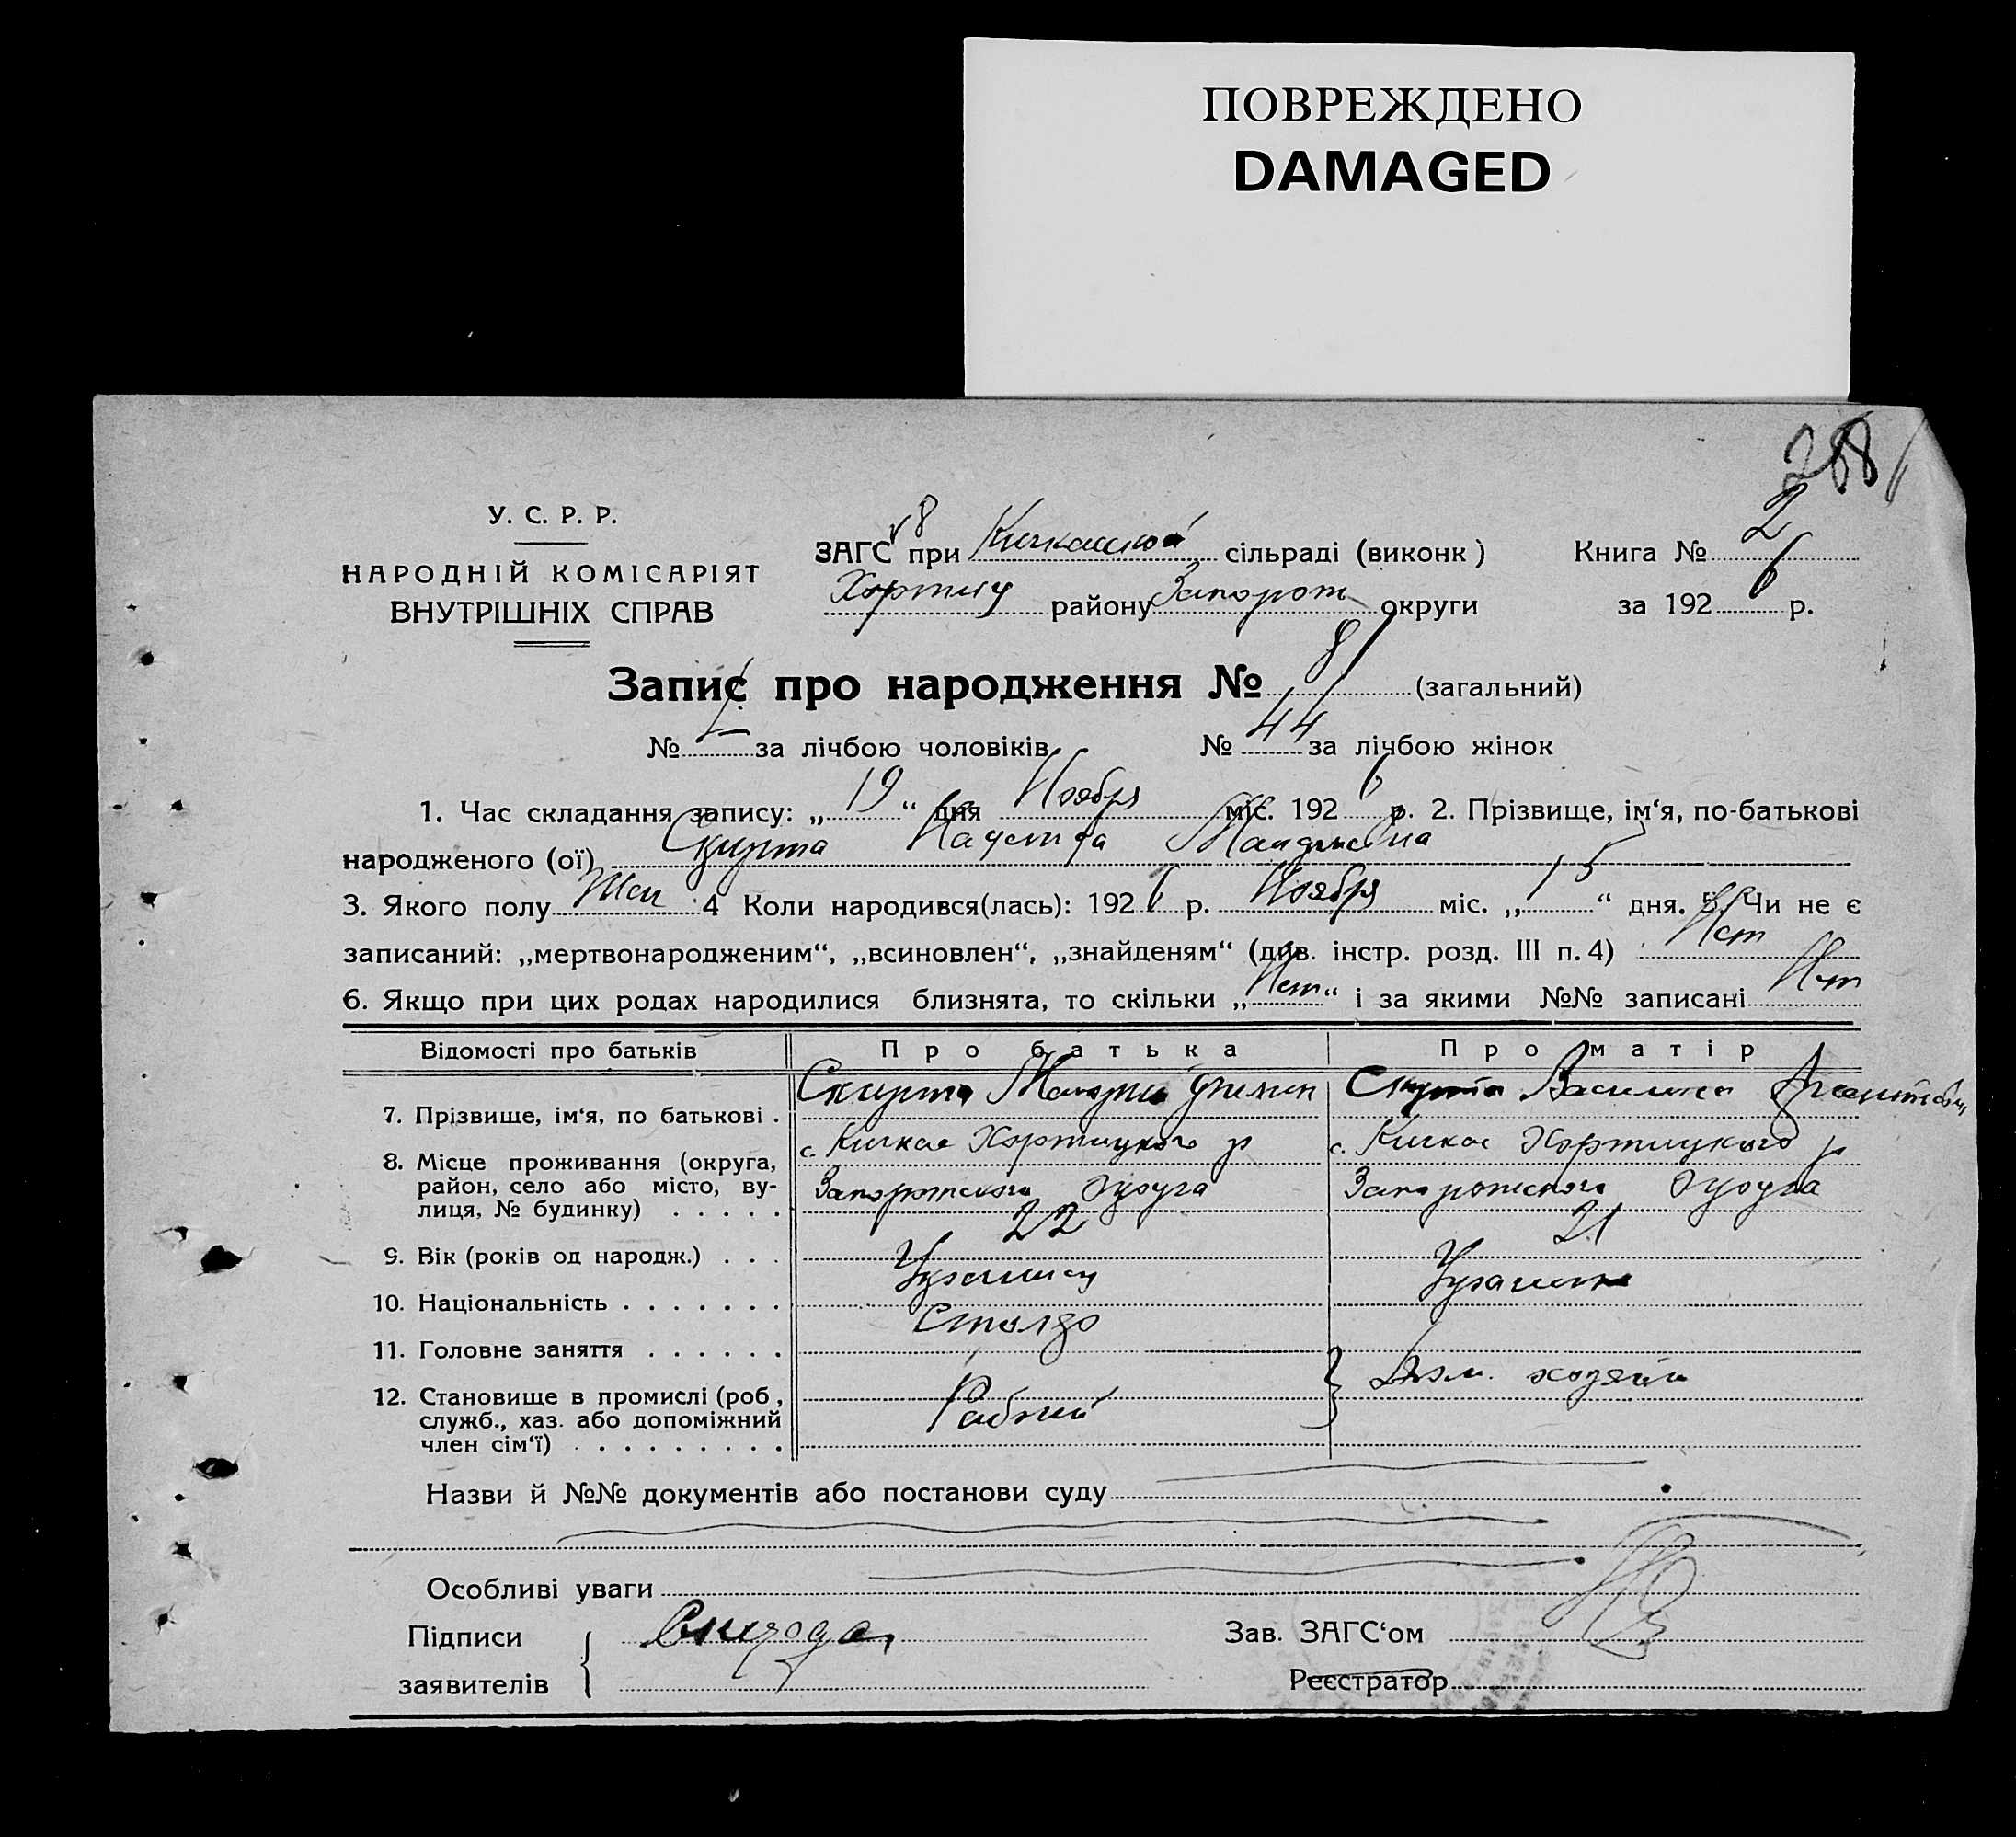 ПОВРЕЖДЕНО
DAMAGED
288
У. С. Р. Р.
НАРОДНІЙ КОМІСАРІЯТ
ВНУТРІШНІХ СПРАВ
ЗАГС при Кичкаской сільраді (виконк) Книга № 2
Хортиц району Запорож округи за 1926 р.
Запис про народження № 81 (загальний)
№ за лічбою чоловіків № 44 за лічбою жінок
1. Час складання запису: „19“ дня Ноября міс. 1926 р. 2. Прізвище, ім‘я, по-батькові
народженого (ої) Скирта
3. Якого полу Жен 4 Коли народився(лась): 1926 р. Ноября міс. „15“ дня. 5. Чи не є
записаний: „мертвонародженим“, „всиновлен“, „знайденям“ (див. інстр. розд. III п. 4) Нет
6. Якщо при цих родах народилися близнята, то скільки „Нет“ і за якими №№ записані Нет
Відомості про батьків Про батька Про матір
7. Прізвище, ім‘я, по батькові . Скирта Скирта Василиса
8. Місце проживання (округа, район, село або місто, вулиця, № будинку) . . . . .
с. Кичкас Хортицкого р
Запорожского Округа
с. Кичкас Хортицкого р
Запорожского Округа
9. Вік (років од народж.) . . . 22 21
10. Національність . . . . . . . Украинец Украинка
11. Головне заняття . . . . . . Столяр
12. Становище в промислі (роб, служб., хаз. або допоміжний член сім‘ї) . . . . . . . . . Рабочий } Дом. хозяйк
Назви й №№ документів або постанови суду
Особливі уваги
Підписи
заявителів
Зав. ЗАГС‘ом
Реєстратор